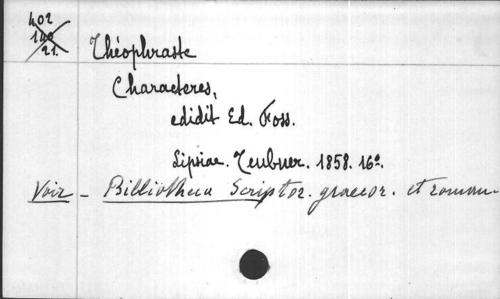 402
100
21.
Théophraste
Characteres,
edidit Ed. Foss.
Lipsiae. Teubner. 1858. 16°.
Voir - Bibliotheca Scriptor. graecor. et roman.